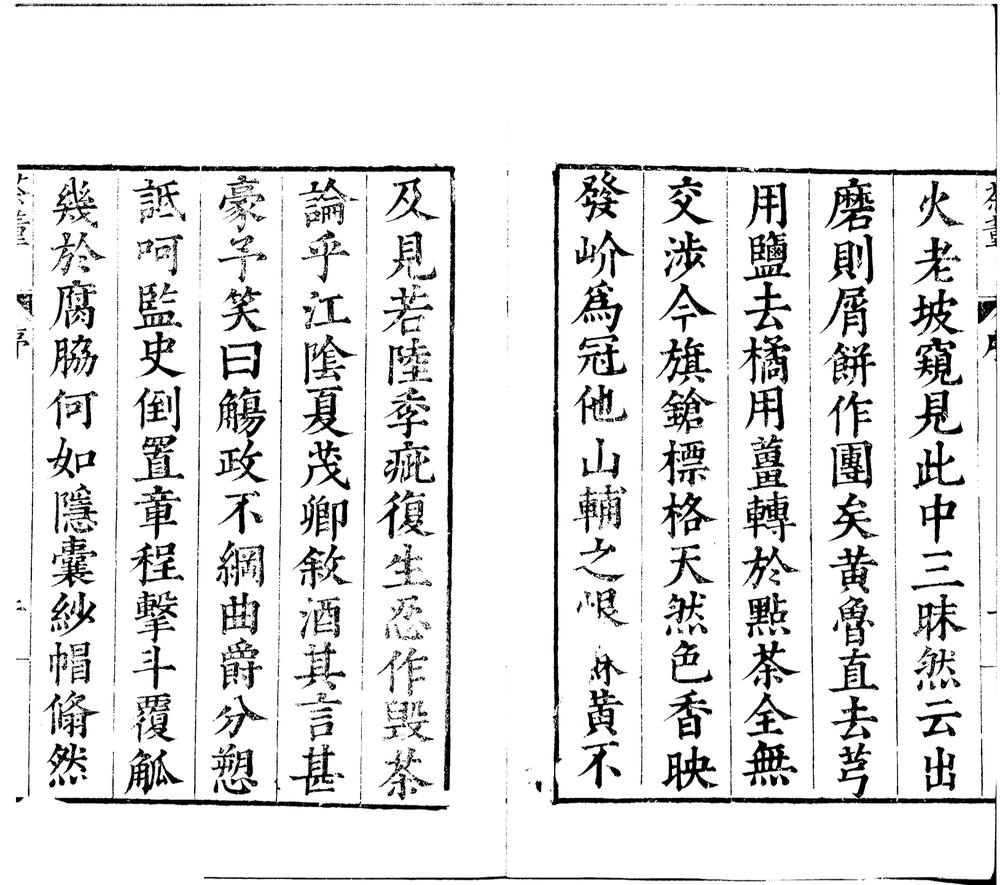 茶董
火老坡窺見此中三昧然云出
磨則屑餅作團矣黃魯直去芎
用鹽去橘用薑轉於點茶全無
交涉今旗鎗標格天然色香映
發岕爲冠他山輔之恨黃不
及見若陸季疵復生忍作毀茶
論乎江陰夏茂卿敘酒其言甚
豪予笑曰觴政不綱曲爵分愬
詆呵監史倒置章程擊斗覆觚
幾於腐脇何如隱囊紗帽翛然
茶董 序